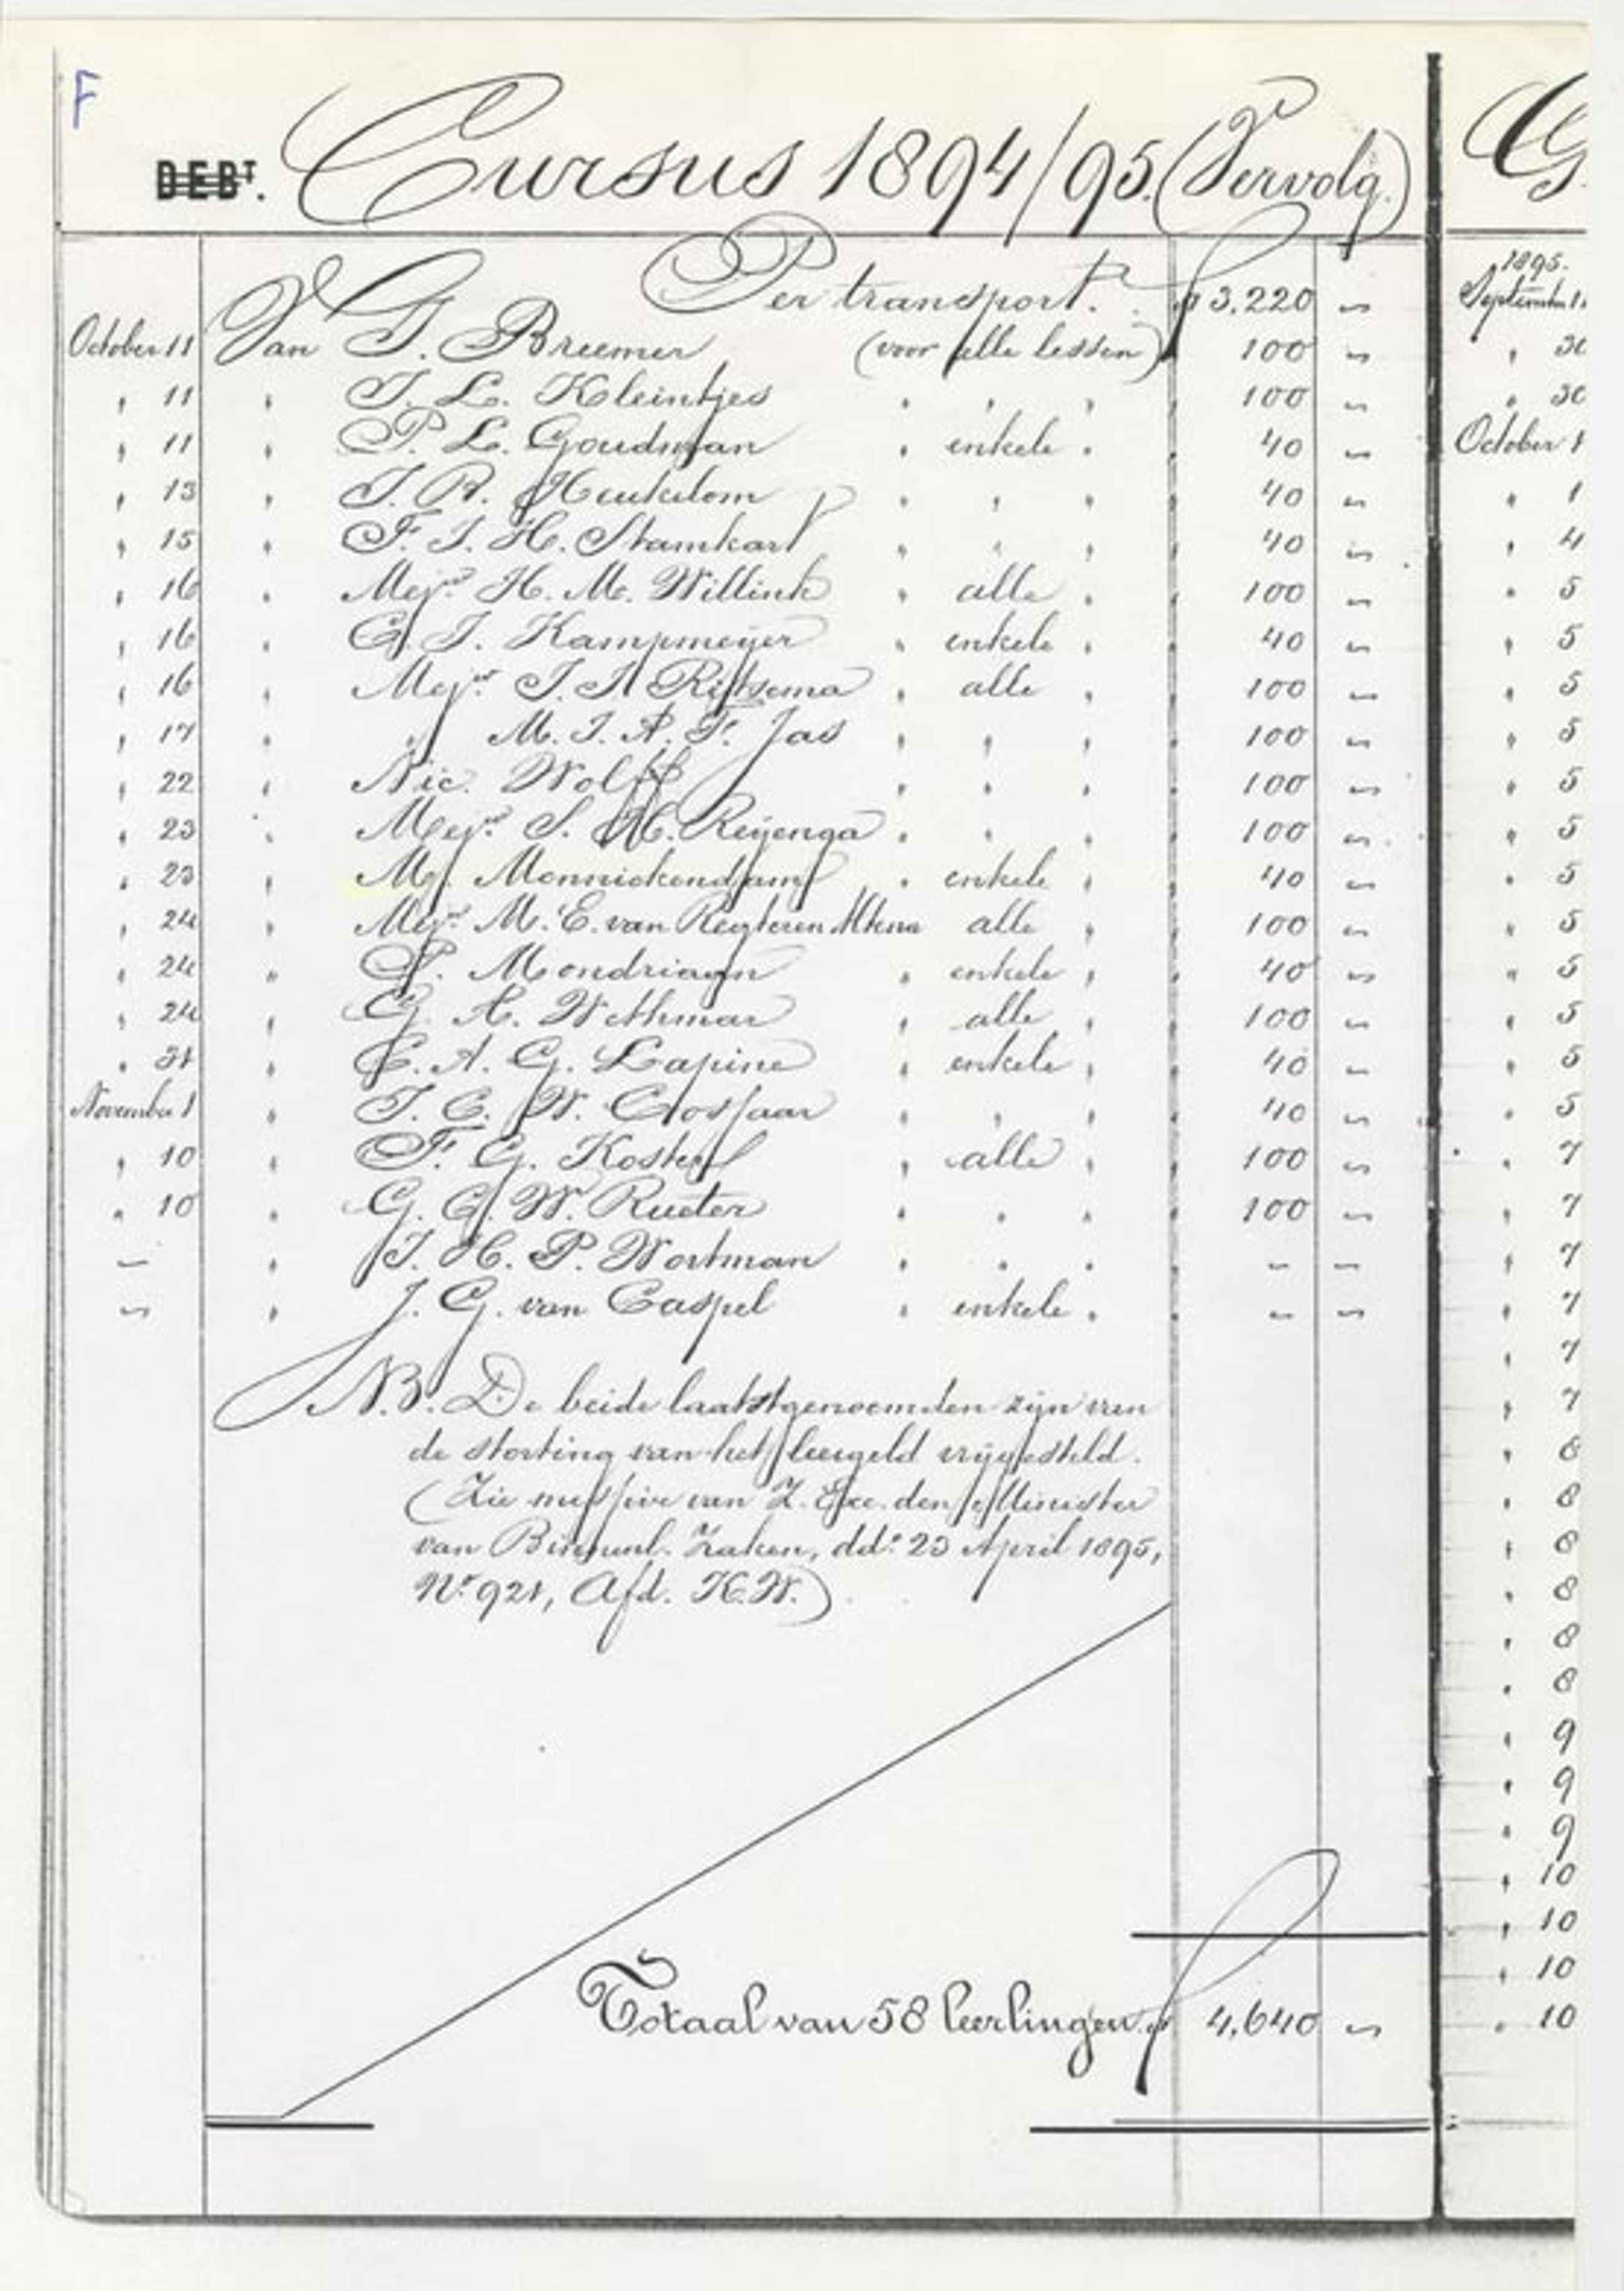 F
DEBT. Cursus 1894/95. (Vervolg.)
Per transport. f 3,220 "
October 11 Van G. Breemer (voor alle lessen) " 100 "
" 11 " J. L. Kleintjes " " " " 100 "
" 11 " P. L. Goudman " enkele " " 40 "
" 13 " J. R. Heukelom " " " " 40 "
" 15 " F. J. H. Stamkart " " " " 40 "
" 16 " Mejr. H. M. Willink " alle " " 100 "
" 16 " C. J. Kampmeijer " enkele " " 40 "
" 16 " Mejr. J. J. Ritsema " alle " " 100 "
" 17 " " M. J. A. F. Jas " " " " 100 "
" 22 " Nic. Wolff " " " " 100 "
" 23 " Mejr. S. H. Reijenga " " " " 100 "
" 23 " M. Monnickendam " enkele " " 40 "
" 24 " Mejr. M. E. van Regteren Altena alle " " 100 "
" 24 " P. Mondriaan " enkele " " 40 "
" 24 " G. H. Wethmar " alle " " 100 "
" 31 " E. A. G. Lapine " enkele " " 40 "
November 1 " J. C. W. Cossaar " " " " 40 "
" 10 " F. G. Koster " alle " " 100 "
" 10 " G. C. W. Rueter " " " " 100 "
— " J. H. P. Wortman " " " " – –
— " J. G. van Caspel " enkele " " – –
N.B. De beide laatstgenoemden zijn van
de storting van het leergeld vrijgesteld.
(Zie missive van Z. Exc. den Minister
van Binnenl. Zaken, dd. 23 April 1895,
No. 921, Afd. K.W.)
Totaal van 58 leerlingen f 4,640 "
1895.
September
" 30
" 30
October 1
" 1
" 4
" 5
" 5
" 5
" 5
" 5
" 5
" 5
" 5
" 5
" 5
" 5
" 5
" 7
" 7
" 7
" 7
" 7
" 7
" 8
" 8
" 8
" 8
" 8
" 8
" 9
" 9
" 9
" 10
" 10
" 10
" 10